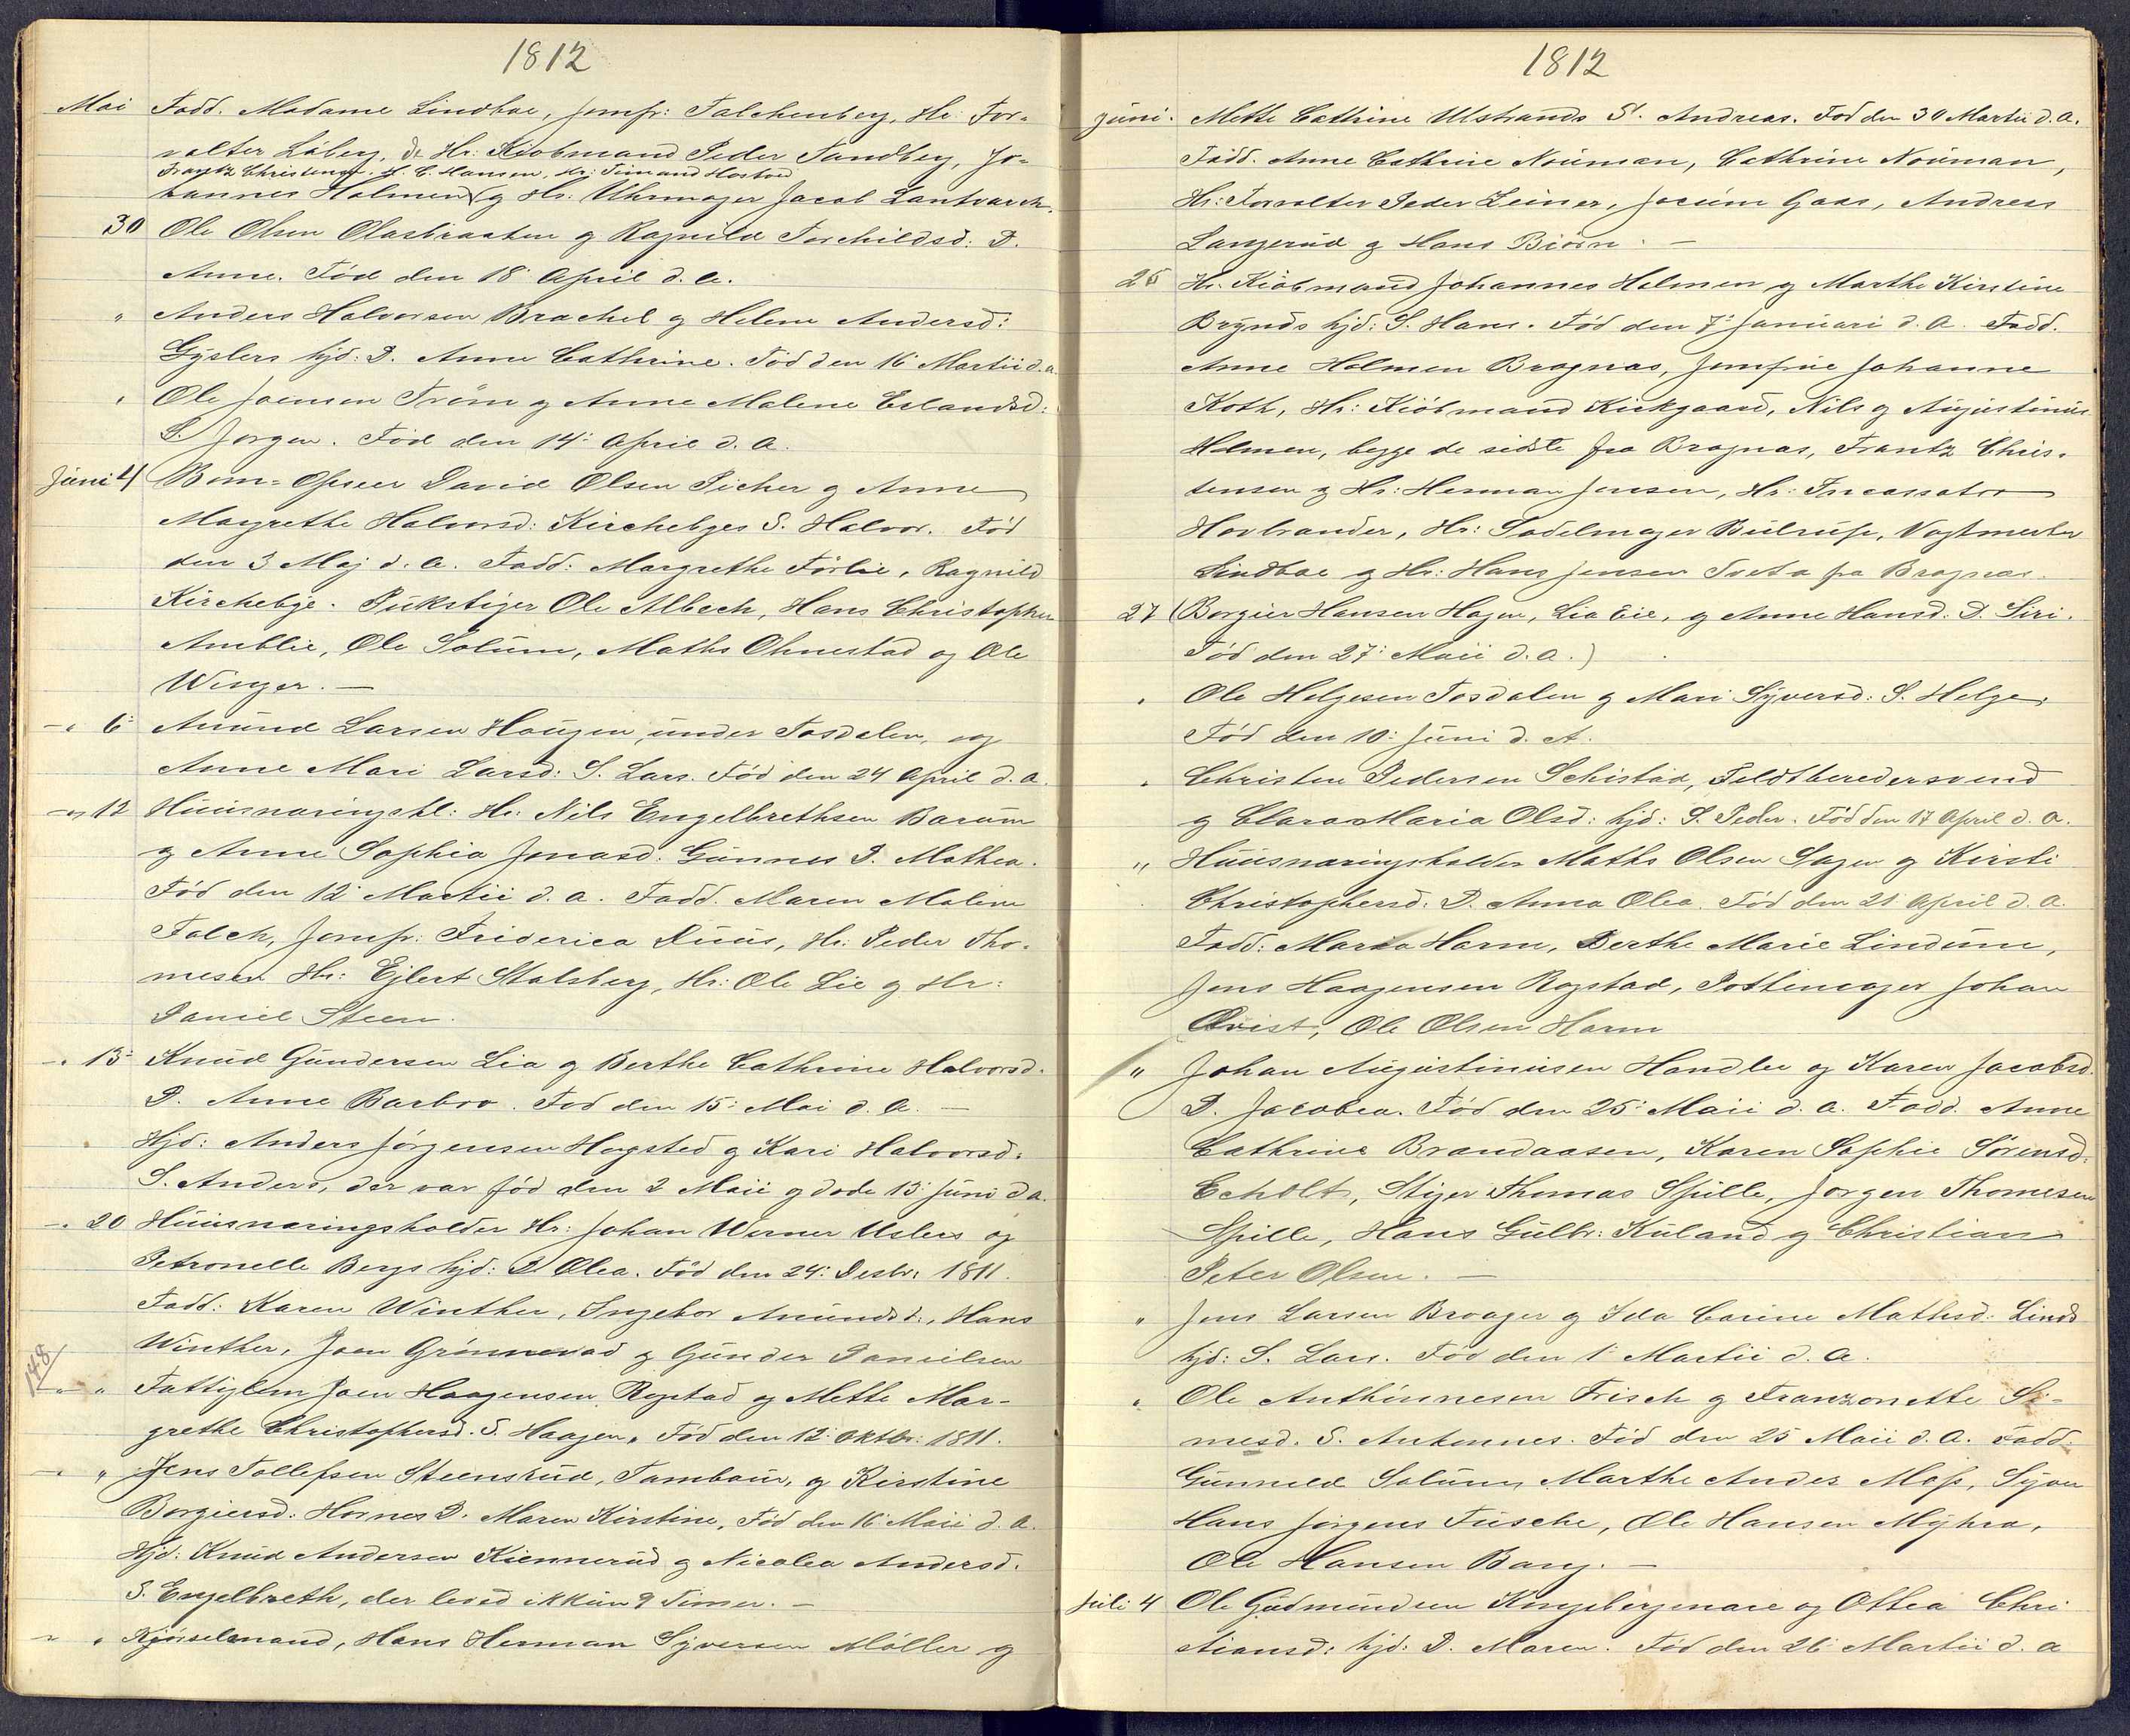 1812
Mai Fadd. Madame Lindboe, Jomfr: Falchenberg, Hr. For-
valter Löberg, de Hr: Kiobmand Peder Sandberg, Jo-
Frantz Christensen. H. C. Hansen, Hr:
hannes Holmen g Hr. Uhrmager Jacob Lantvarch.
30 Ole Olsen Olasbraaten g Ragnild Torchildsd: D.
Anne. Fød den 18: April d. a.
" Anders Halvorsen Brachel g Helene Andersd:
Gyslers hjd: D. Anne Cathrine. Fød den 16 Martii d. a.
" Ole Joensen Tröm g Anne Malene Erlandsd:
S. Jorgen. Fød den 14: April d. a.
Juni 4 Bom-Opseer David Olsen Picher g Anne
Margrethe Halvorsd: Kirchebyes S. Halvor. Fød
den 3 Maj d. a. Fadd: Margrethe Förlie, Ragnild
Kirchebye. Pukstiger Ole Albech, Hans Christopher
Amblie, Ole Solum, Maths Ohnestad og Ole
Winger. —
-" 6: Amund Larsen Haugen, under Fosdalen, og
Anne Mari Larsd: S. Lars. Fød den 24 April d. a.
-" 12 Huusnaringshl: Hr. Nils Engelbrethsen Barum
g Anne Sophia Jonasd: Gunnes D. Mathea.
Fød den 12: Martii d. a. Fadd. Maren Malene
Falch, Jomfr: Friderica Duus, Hr. Peder Tho-
mesen Hr: Ejlert Stalsberg, Hr: Ole Lie g Hr:
Daniel Steen.
-" 13: Knud Gundersen Lia g Berthe Cathrine Halvorsd.
D. Anne Barbro. Fød den 15: Mai d. a. —
" Hjd: Anders Jörgensen Hogsted g Kari Halvorsd:
S. Anders, der var fød den 2 Maii g døde 13: Juni d a.
-" 20 Huusnaringsholder Hr: Johan Werner Uslers og
Petronelle Bergs hjd: D Olea. Fød den 24: Desbr: 1811.
Fadd: Karen Winther, Ingebor Amundsd:, Hans
Winther, Joen Grönnevad g Gunder Danielsen
148
-" " Fattiglem Joen Haagensen Rogstad og Mette Mar-
grethe Christophersd. S. Haagen. Fød den 12: Oktbr: 1811.
-" " Jens Tollefsen Steensrud, Tambour, g Kirstine
Borgiersd: Hornes D. Maren Kirstine, Fød den 16: Maii d. a.
Hjd: Knud Andersen Kiennerud g Nicolea Andersd.
S. Engelbreth, der leved ikkun 9 Timer. —
" " Kjörselsmand, Hans Herman Syversen Möller g
1812
Juni. Mette Cathrine Ulstrands S. Andreas. Fød den 30 Martii d. a.
Fadd. Anne Cathrine Nouman, Cathrine Nouman,
Hr: Forvalter Peder Leiner, Jocum Gaas, Andreas
Langerud g Hans Biörn. —
25 Hr. Kiöbmand Johannes Holmen g Marthe Kirstine
Brynds hjd: S. Hans. Fød den 7: Januari d. a. Fadd.
Anne Holmen Bragnas, Jomfrue Johanne
Koth, Hr: Kiöbmand Kirkgaard, Nils g Augustinus
Holmen, begge de sidste fra Bragnas, Frantz Chris-
tensen g Hr: Herman Jensen, Hr: Incassator
Hovbrander, Hr: Sadelmager Bulrup, Vagtmester
Lindboe g Hr: Hans Jensen Tveta fra Bragnas.
27 (Borgier Hansen Hagen, Lia Eie, g Anne Hansd: D. Siri.
Fød den 27: Maii d. a.)
" Ole Helgesen Fosdalen g Mari Syversd: S. Helge.
Fød den 10: Juni d. A.
" Christen Pedersen Schistad, Feldtberedersvend
g Clara Maria Olsd: hjd: S. Peder. Fød den 17 April d. a.
" Huusnaringsholder Maths Olsen Sagen g Kirsti
Christophersd. D. Anna Olea. Fød den 21: April d. a.
Fadd: Maria Harm, Berthe Marie Lindum,
Jens Haagensen Rogstad, Pottemager Johan
Qvist, Ole Olsen Harm
" Johan Augustinusen Handler og Karen Jacobsd.
D. Jacobea. Fød den 25: Maii d. a. Fadd. Anne
Cathrine Brandaasen, Karen Sophie Sörensd:
Echolt, Stiger Thomas Spille, Jorgen Thomesen
Spille, Hans Gulbr: Ruland g Christian
Peter Olsen. —
" Jens Larsen Brvager g Ida Carine Mathisd: Linds
hjd: S. Lars. Fød den 1: Martii d. a.
" Ole Anthinnesen Frisch g Franzonette Si-
mesd. S. Antonnes. Fød den 25 Maii d. a. Fadd.
Gunneld Solum, Marthe Anders Moss, Syver
Hans Jörgens Tusche, Ole Hansen Myhra,
Ole Hansen Bang. —
Juli 4 Ole Gudmundsen Kongsbergenare og Ottea Chri
stiansd: hjd: D. Maren. Fød den 26: Martii d. a